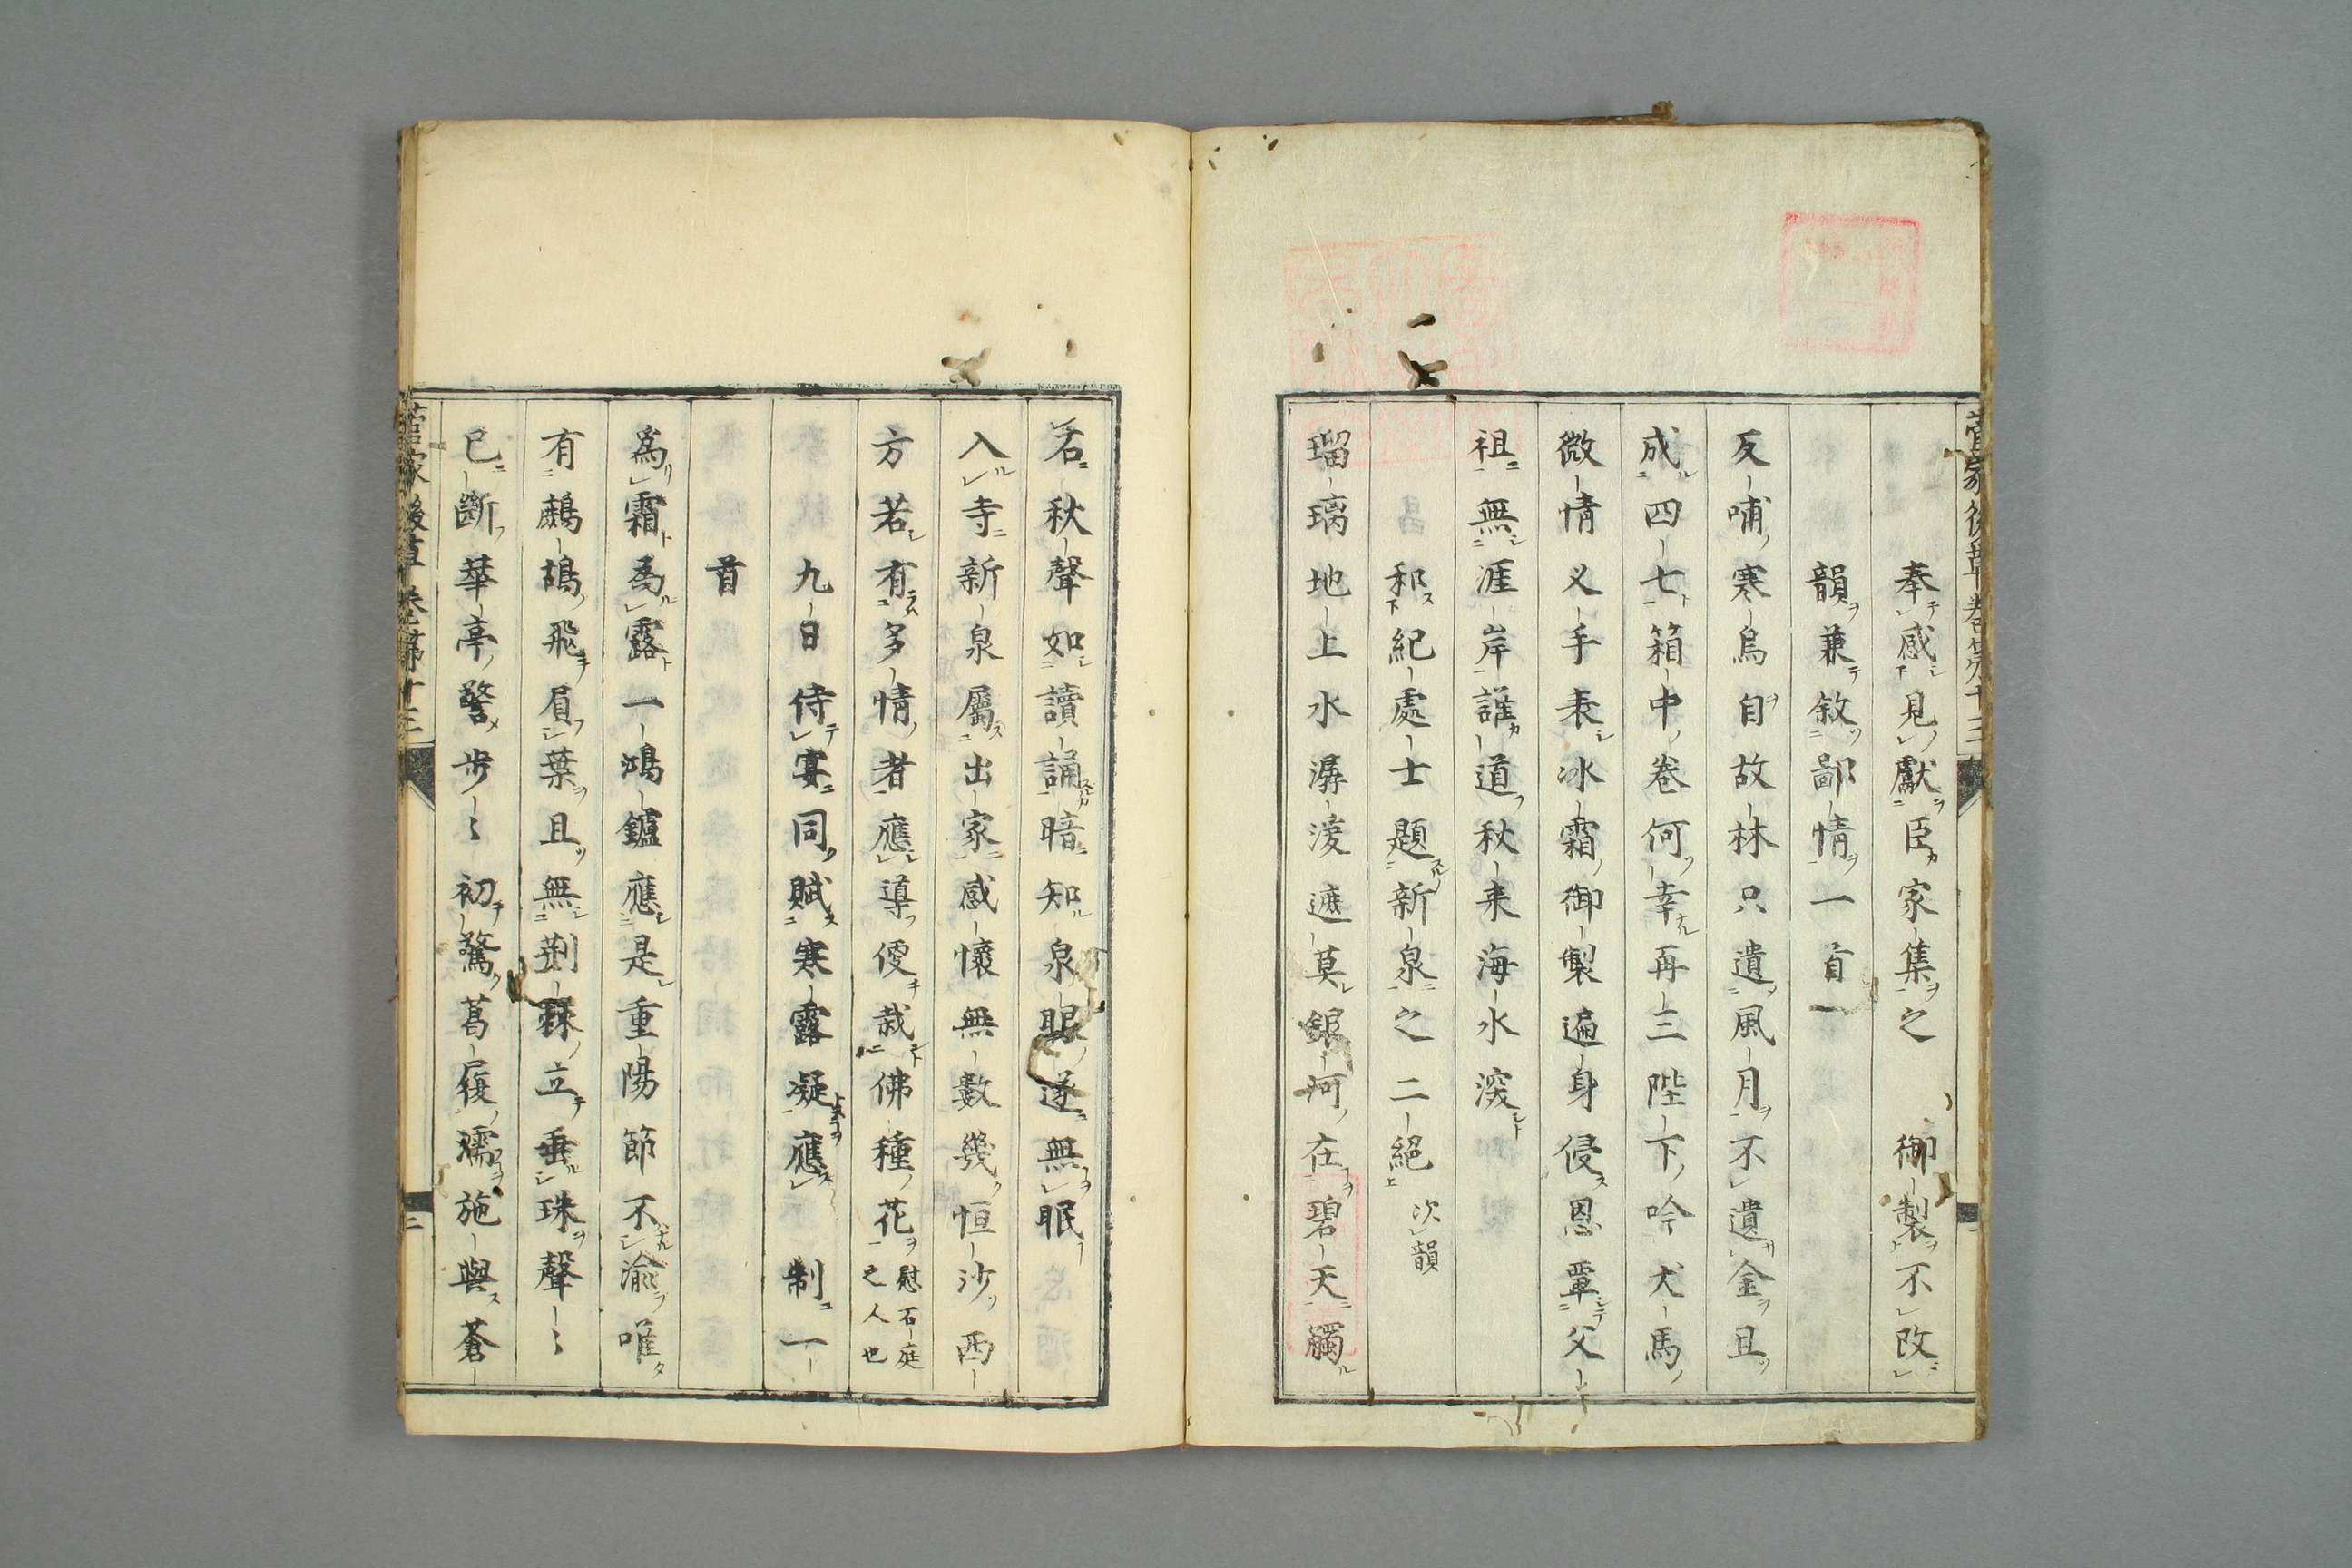 菅家後草 巻第十三
奉感見獻臣家集之　御製不改
韻兼敘鄙情一首
反哺寒烏自故林只遺風月不遺金且
成四七箱中巻何幸再三陛下吟犬馬
微情叉手表冰霜御製遍身侵恩覃父
祖無涯岸誰道秋来海水深
和紀處士題新泉之二絕 次韻
瑠璃地上水潺湲遮莫銀河在碧天觸
石秋聲如讀誦暗知泉眼遂無眠
入寺新泉屬出家感懷無數幾恒沙西
方若有多情者應導便栽佛種花 慰石庭之人也
九日侍宴同賦寒露凝應　制一
首
爲霜爲露一鴻鑪應是重陽節不渝唯
有鷓鴣飛屓葉且無荊棘立垂珠聲〻
已斷華亭警步〻初驚葛履濡施與蒼
菅家後草 巻第十三
二